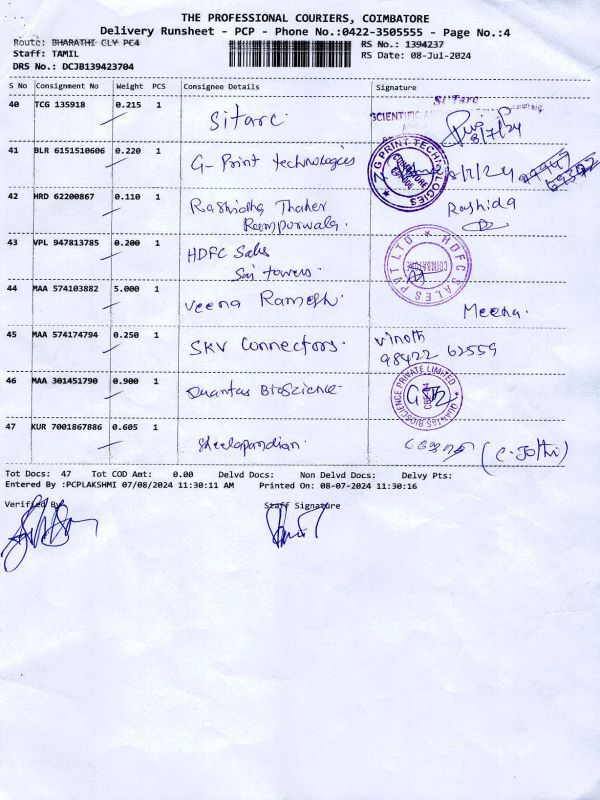 THE PROFESSIONAL COURIERS, COIMBATORE
Delivery Runsheet - PCP - Phone No.:0422-3505555 - Page No.:4
Route: BHARATHI CLY PC4
RS No.: 1394237
Staff: TAMIL
RS Date: 08-Jul-2024
DRS No.: DCJB139423704
S No Consignment No Weight PCS Consignee Details Signature
40 TCG 135918 0.215 1 Sitarc.
Si'Tarc
SCIENTIFIC
8/7/24
41 BLR 6151510606 0.220 1 G-Print technologies
G PRINT TECHNOLOGIES
COIMBATORE
42 HRD 62200867 0.110 1 Rashidha Thaher
Rampurwala.
Rashida
43 VPL 947813785 0.200 1 HDFC Sales
Sai towers.
HDFC SALES PVT LTD
COIMBATORE
44 MAA 574103882 5.000 1 Veena Ramesh.
Meena.
45 MAA 574174794 0.250 1 SKV Connectors.
Vinoth
98422 62559
46 MAA 301451790 0.900 1 Quantas BioScience
QUANTAS BIOSCIENCE PRIVATE LIMITED
47 KUR 7001867886 0.605 1 Sheelapandian.
(C. Jothi)
Tot Docs: 47 Tot COD Amt: 0.00 Delvd Docs: Non Delvd Docs: Delvy Pts:
Entered By :PCPLAKSHMI 07/08/2024 11:30:11 AM Printed On: 08-07-2024 11:30:16
Verified By
Staff Signature